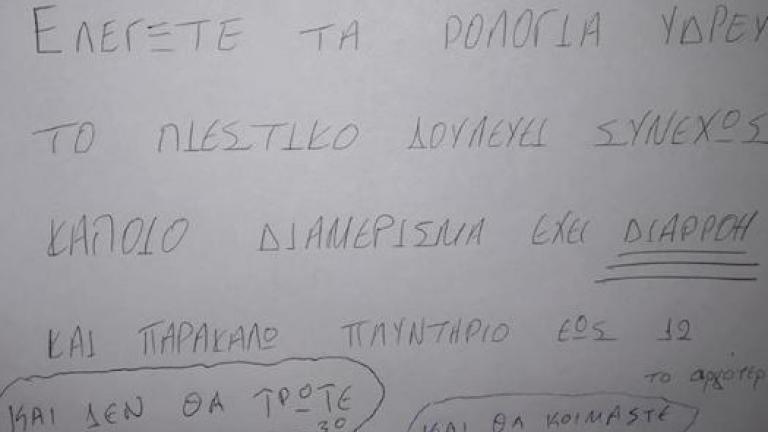 ΕΛΕΓΞΤΕ ΤΑ ΡΟΛΟΓΙΑ ΥΔΡΕΥ
ΤΟ ΠΙΕΣΤΙΚΟ ΔΟΥΛΕΥΕΙ ΣΥΝΕΧΩΣ
ΚΑΠΟΙΟ ΔΙΑΜΕΡΙΣΜΑ ΕΧΕΙ ΔΙΑΡΡΟΗ
ΚΑΙ ΠΑΡΑΚΑΛΩ ΠΛΥΝΤΗΡΙΟ ΕΩΣ 12
το αργότερ
ΚΑΙ ΔΕΝ ΘΑ ΤΡΩΤΕ
30
ΚΑΙ ΘΑ ΚΟΙΜΑΣΤΕ